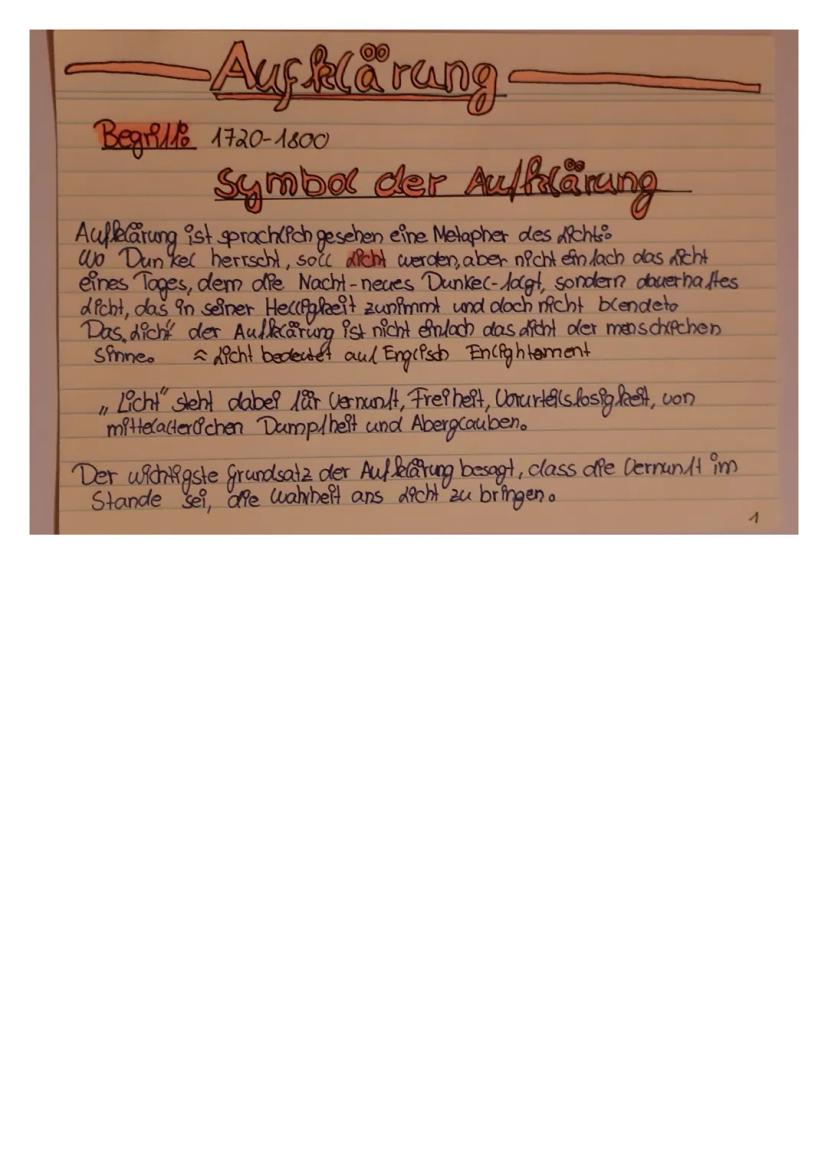 Aufklärung
Begriff: 1720-1800
Symbol der Aufklärung
Aufklärung ist sprachlich gesehen eine Metapher des Lichts:
Wo Dunkel herrscht, soll Licht werden, aber nicht einfach das Licht
eines Tages, dem die Nacht-neues Dunkel-folgt, sondern dauerhaftes
Licht, das in seiner Helligkeit zunimmt und doch nicht blendet.
Das „Licht" der Aufklärung ist nicht einfach das Licht der menschlichen
Sinne. ≈ Licht bedeutet auf Englisch Enlightament
„Licht" steht dabei für Vernunft, Freiheit, Vorurteilslosigkeit, von
mittelalterlichen Dumpfheit und Aberglauben.
Der wichtigste Grundsatz der Aufklärung besagt, dass die Vernunft im
Stande sei, die Wahrheit ans Licht zu bringen.
1